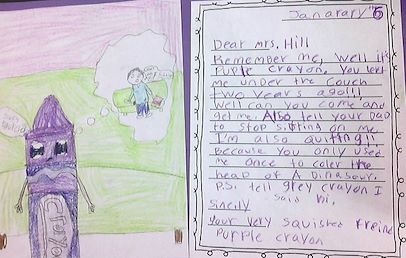 Janarary 6
Dear mrs. Hill
Remember me, well it's
Puple crayon. You left
me under the couch
two years ago!!!
Well can you come and
get me. Also tell your Dad
to stop sitting on me.
I'm also quiting!!
Because you only used
me once to coler the
head of A Dinasour.
P.S. tell grey crayon I
said hi,
sincerlly
your very squished freind
purple crayon
Crayon